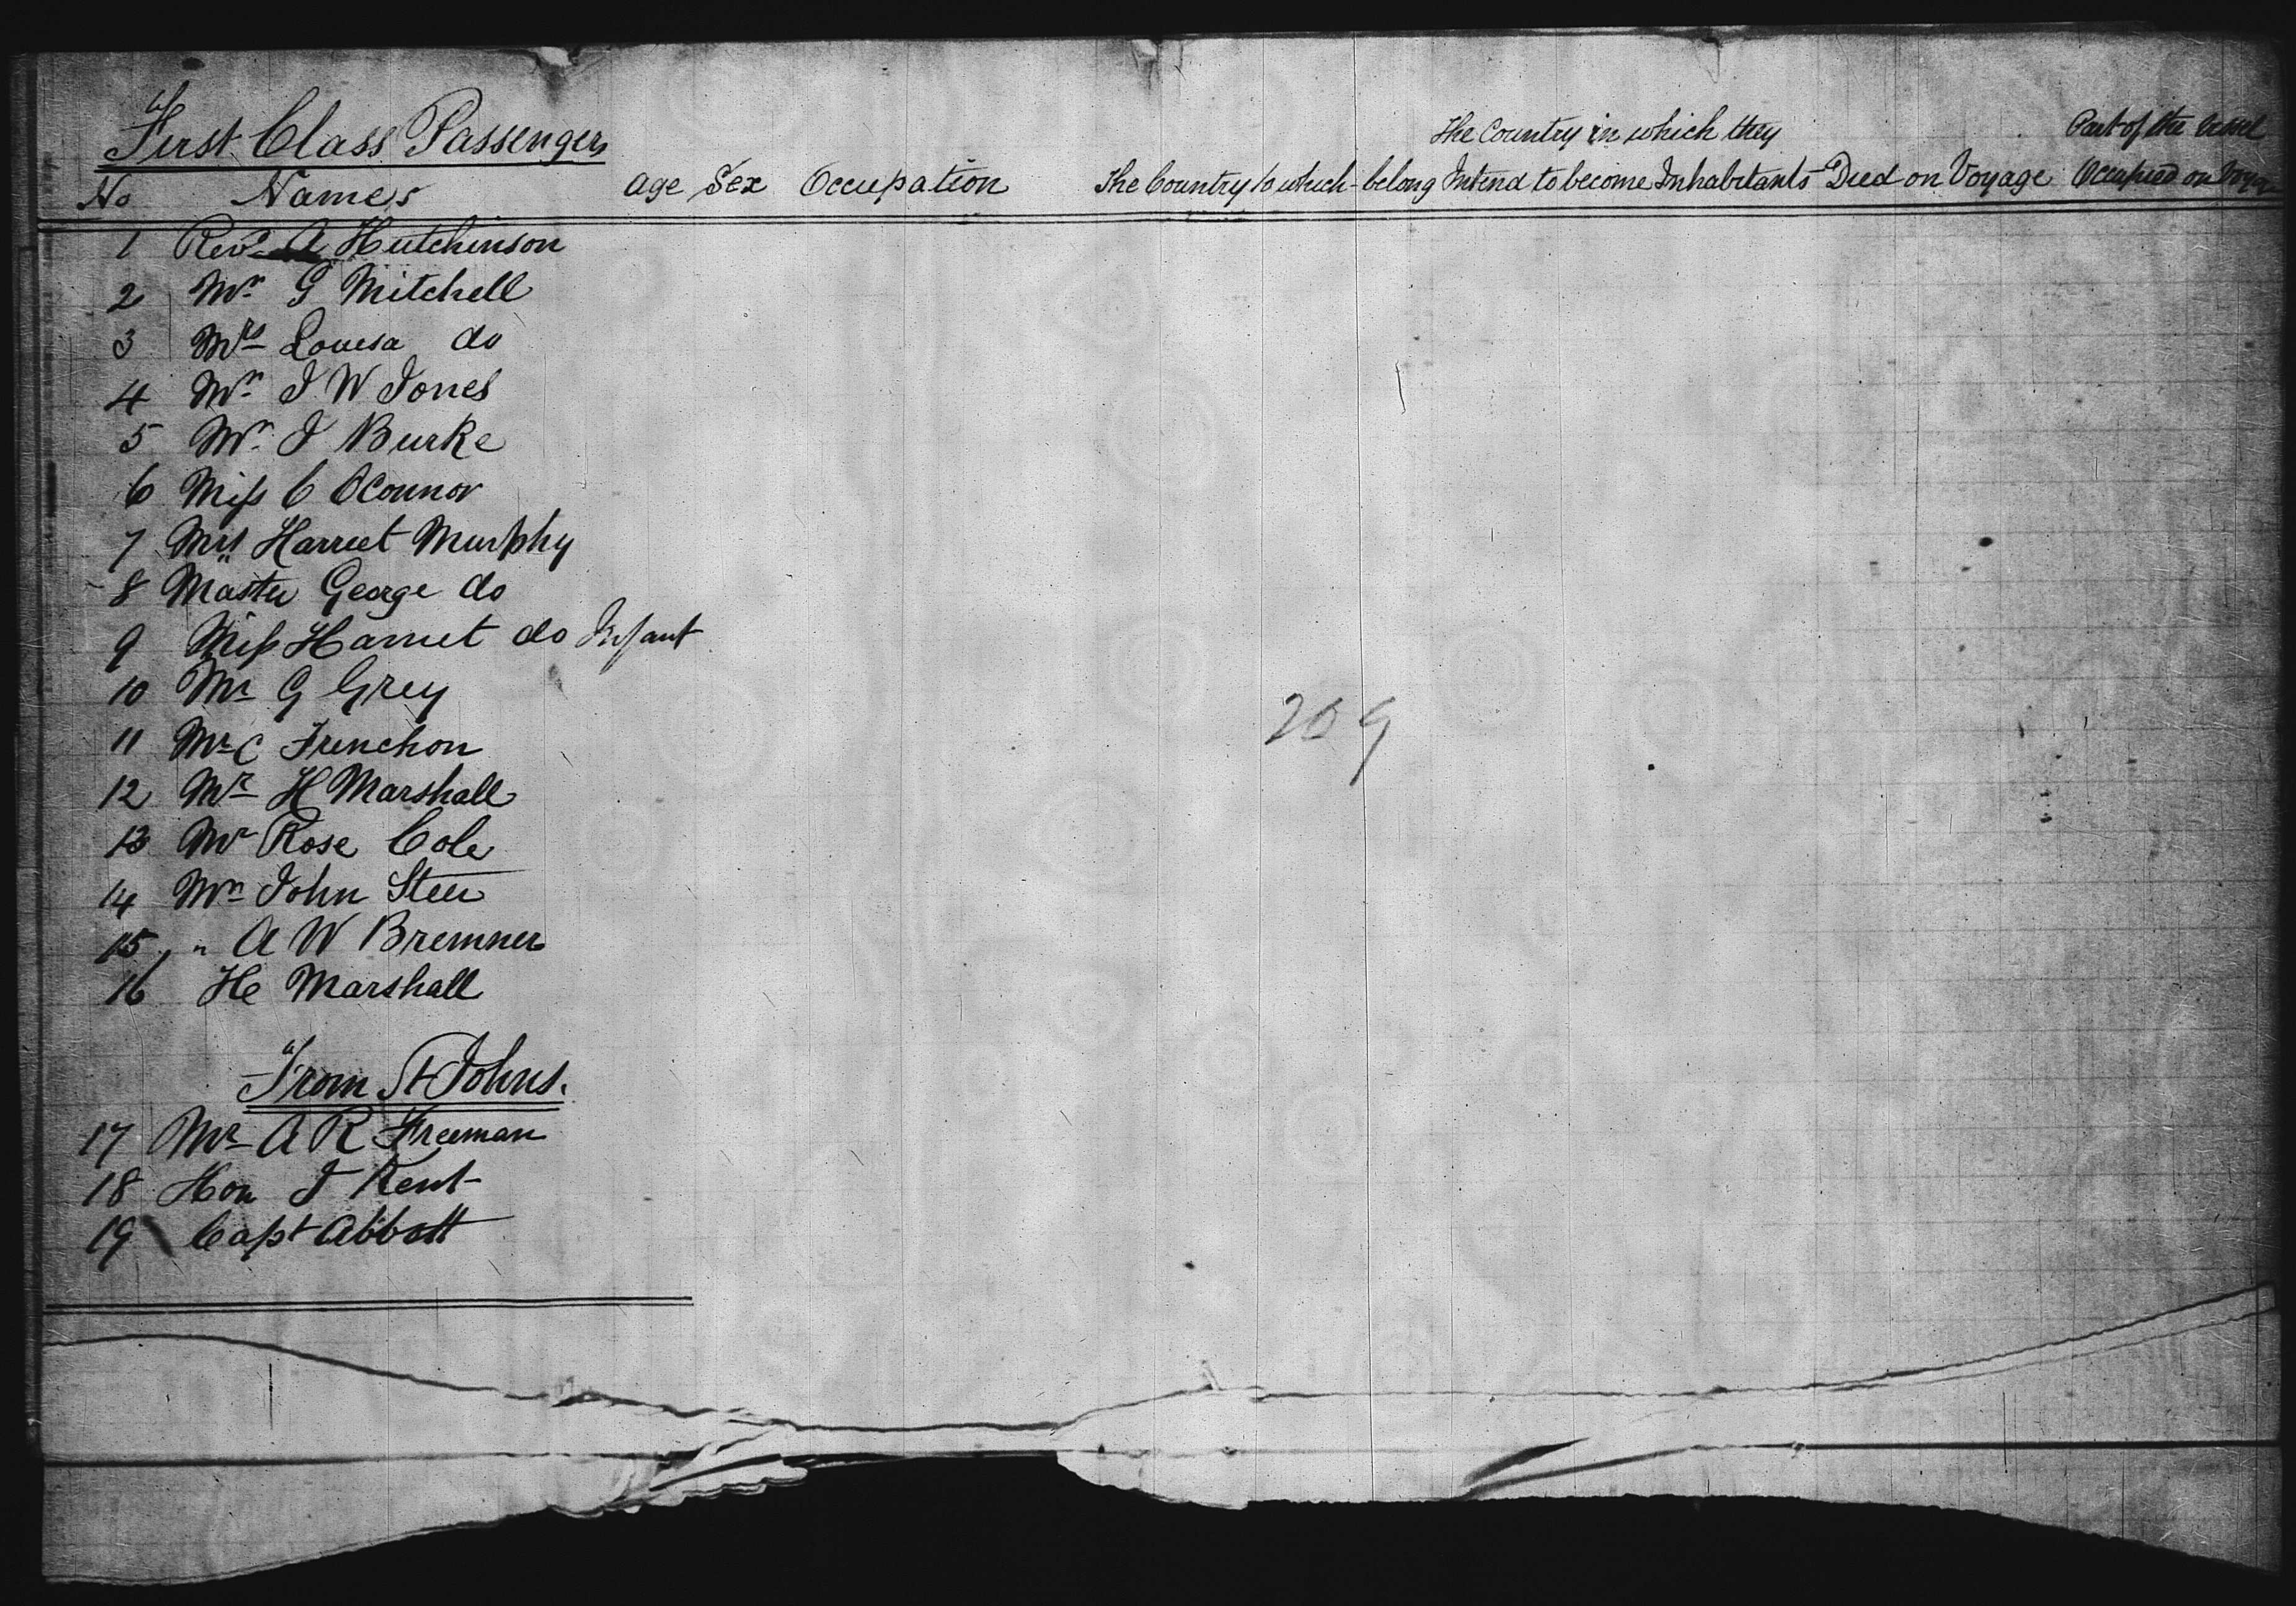 First Class Passengers
The Country in which they Part of the vessel
No Names age Sex Occupation The Country to which belong Intend to become Inhabitants Died on Voyage Occupied on Voyage
1 Revd A Hutchinson
2 Mr G Mitchell
3 Mrs Louesa do
4 Mr J W Jones
5 Mr J Burke
6 Miss C OConnor
7 Mrs Harriet Murphy
8 Master George do
9 Miss Harriet do Infant
10 Mr G Grey
11 Mr C Frenchon
209
12 Mr H Marshall
13 Mr Rose Cole
14 Mr John Steer
15 " A W Bremner
16 He Marshall
From St Johns.
17 Mr A R Freeman
18 Hon J Kent
19 Capt Abbott